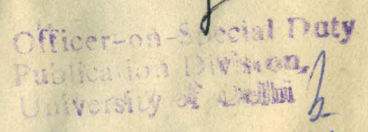 Officer-on-Special Duty
Publication Division,
University of Delhi